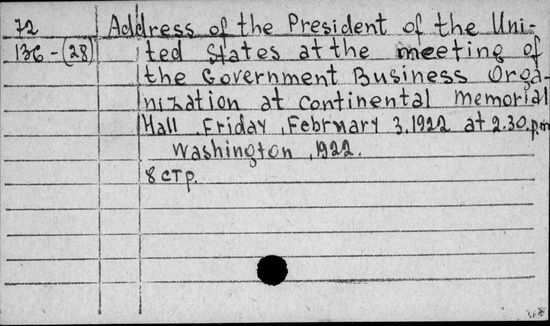 72 Address of the President of the Uni-
136-(28) ted States at the meeting of
the Government Business Orga-
nization at Continental Memorial
Hall, Friday, February 3, 1922 at 2.30. p.m
Washington, 1922.
8 стр.